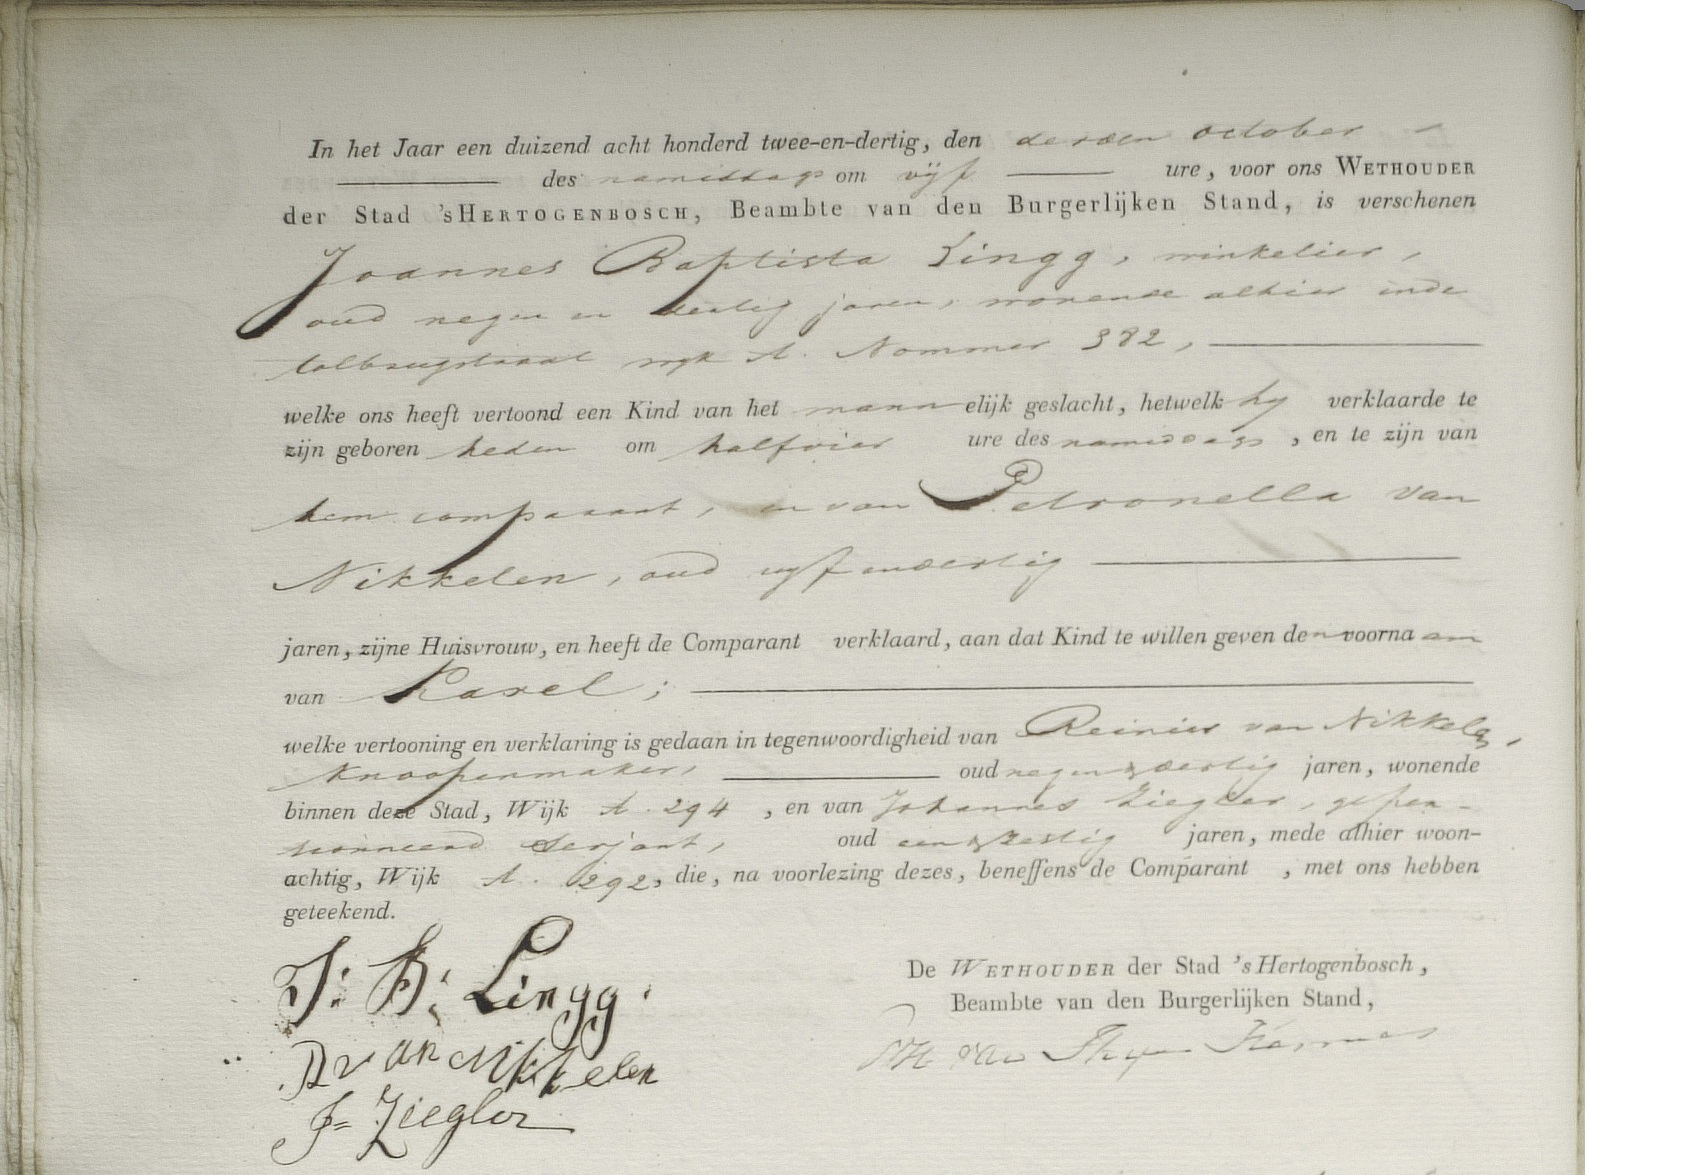 In het Jaar een duizend acht honderd twee-en-dertig, den derden october
des namiddags om vijf ure, voor ons WETHOUDER
der Stad 'sHERTOGENBOSCH, Beambte van den Burgerlijken Stand, is verschenen
Joannes Baptista Lingg, winkelier,
oud negen en dertig jaren, wonende alhier inde
tolbrugstraat wyk A. Nommer 382,
welke ons heeft vertoond een Kind van het mannelijk geslacht, hetwelk hy verklaarde te
zijn geboren heden om halfvier ure des namiddags, en te zijn van
hem comparant, en van Petronella van
Nikkelen, oud vyf endertig
jaren, zijne Huisvrouw, en heeft de Comparant verklaard, aan dat Kind te willen geven den voornaam
van Karel;
welke vertooning en verklaring is gedaan in tegenwoordigheid van Reinier van Nikkelen,
knoopenmaker, oud negen & dertig jaren, wonende
binnen deze Stad, Wijk A. 294, en van Johannes Ziegler, gepen-
sionneerd Serjant, oud een & zestig jaren, mede alhier woon-
achtig, Wijk A. 292, die, na voorlezing dezes, beneffens de Comparant, met ons hebben
geteekend.
J: B: Lingg.
De WETHOUDER der Stad 's Hertogenbosch,
Beambte van den Burgerlijken Stand,
R van Nikkelen
J= Ziegler